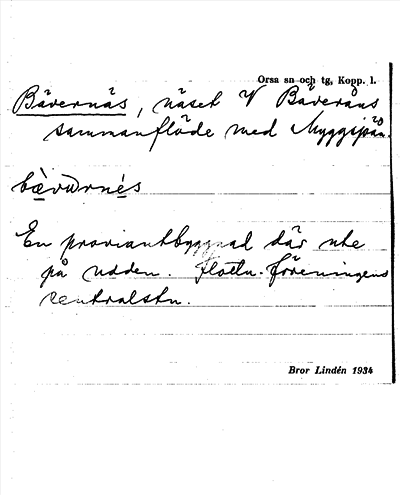 Orsa sn och tg, Kopp. l.
Bävernäs, näset V Bäveråns
sammanflöde med Myggsjöån.
bæ̀vərnés
En proviantbyggnad där ute
på udden. Flottn. föreningens
centralstn.
Bror Lindén 1934